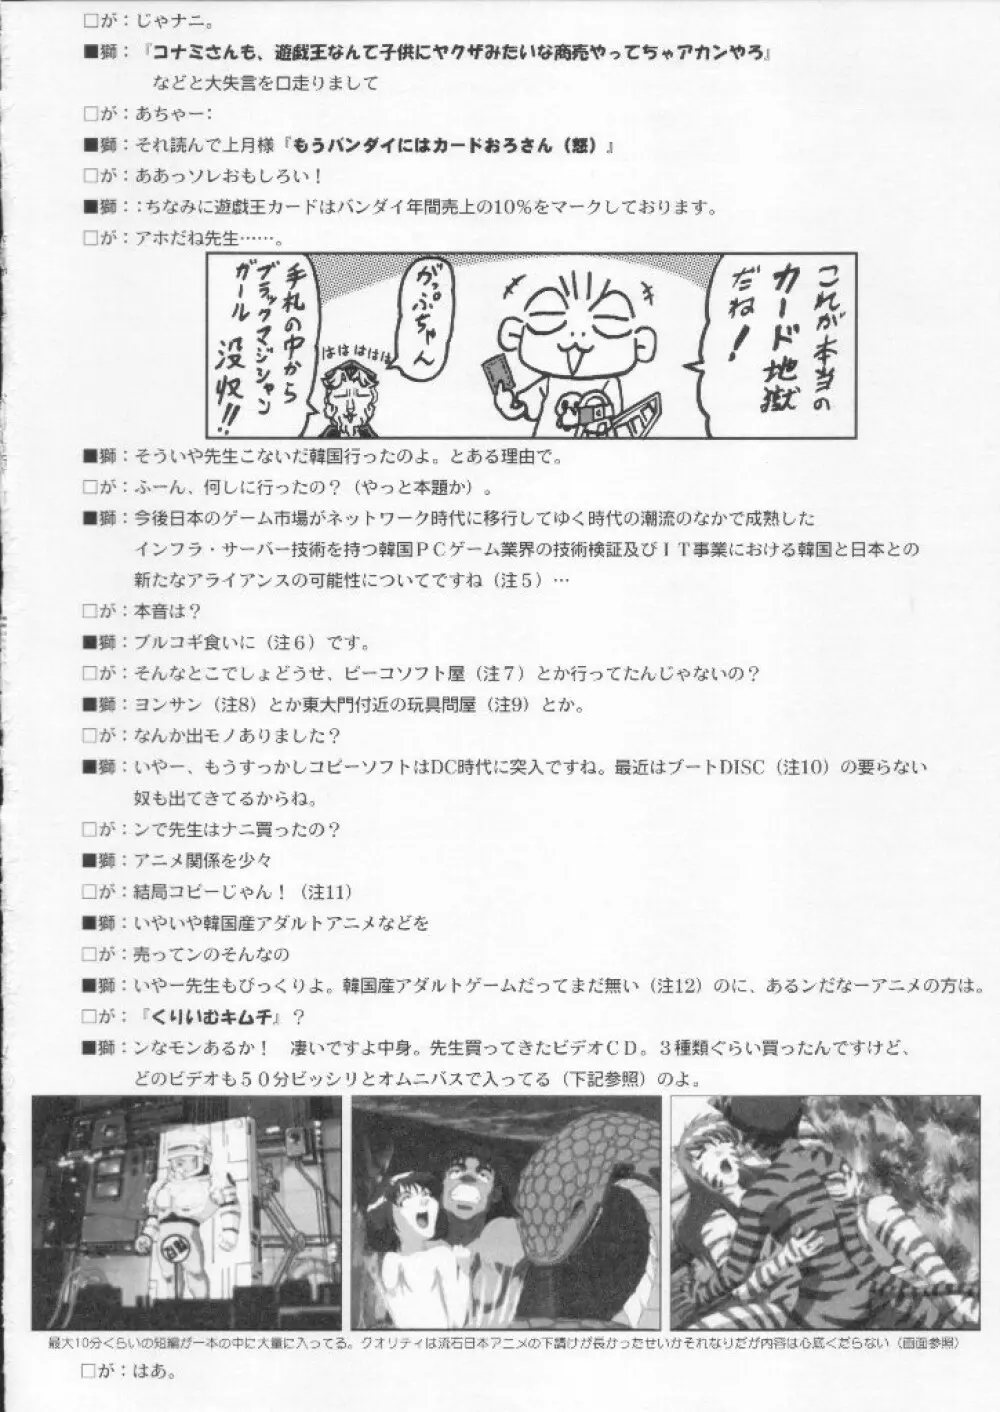 □が：じゃナニ。
■獅：『コナミさんも、遊戯王なんて子供にヤクザみたいな商売やってちゃアカンやろ』
などと大失言を口走りまして
□が：あちゃー：
■獅：それ読んで上月様『もうバンダイにはカードおろさん（怒）』
□が：ああっソレおもしろい！
■獅：：ちなみに遊戯王カードはバンダイ年間売上の10％をマークしております。
□が：アホだね先生……。
これが本当の
カード地獄
だね！
がっぷちゃん
ははははは
手札の中から
ブラックマジシャン
ガール 没収!!
■獅：そういや先生こないだ韓国行ったのよ。とある理由で。
□が：ふーん、何しに行ったの？（やっと本題か）。
■獅：今後日本のゲーム市場がネットワーク時代に移行してゆく時代の潮流のなかで成熟した
インフラ・サーバー技術を持つ韓国ＰＣゲーム業界の技術検証及びＩＴ事業における韓国と日本との
新たなアライアンスの可能性についてですね（注５）…
□が：本音は？
■獅：プルコギ食いに（注６）です。
□が：そんなとこでしょどうせ、ピーコソフト屋（注７）とか行ってたんじゃないの？
■獅：ヨンサン（注8）とか東大門付近の玩具問屋（注9）とか。
□が：なんか出モノありました？
■獅：いやー、もうすっかしコピーソフトはDC時代に突入ですね。最近はブートDISC（注10）の要らない
奴も出てきてるからね。
□が：ンで先生はナニ買ったの？
■獅：アニメ関係を少々
□が：結局コピーじゃん！（注11）
■獅：いやいや韓国産アダルトアニメなどを
□が：売ってンのそんなの
■獅：いやー先生もびっくりよ。韓国産アダルトゲームだってまだ無い（注12）のに、あるンだなーアニメの方は。
□が：『くりいむキムチ』？
■獅：ンなモンあるか！　凄いですよ中身。先生買ってきたビデオＣＤ。３種類ぐらい買ったんですけど、
どのビデオも５０分ビッシリとオムニバスで入ってる（下記参照）のよ。
最大10分くらいの短編が一本の中に大量に入ってる。クオリティは流石日本アニメの下請けが長かったせいかそれなりだが内容は心底くだらない（画面参照）
□が：はあ。